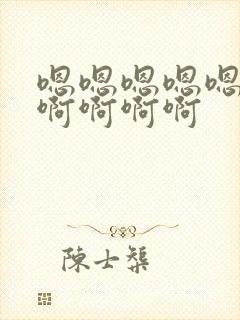 嗯嗯嗯嗯嗯
啊啊啊啊
陳士槊